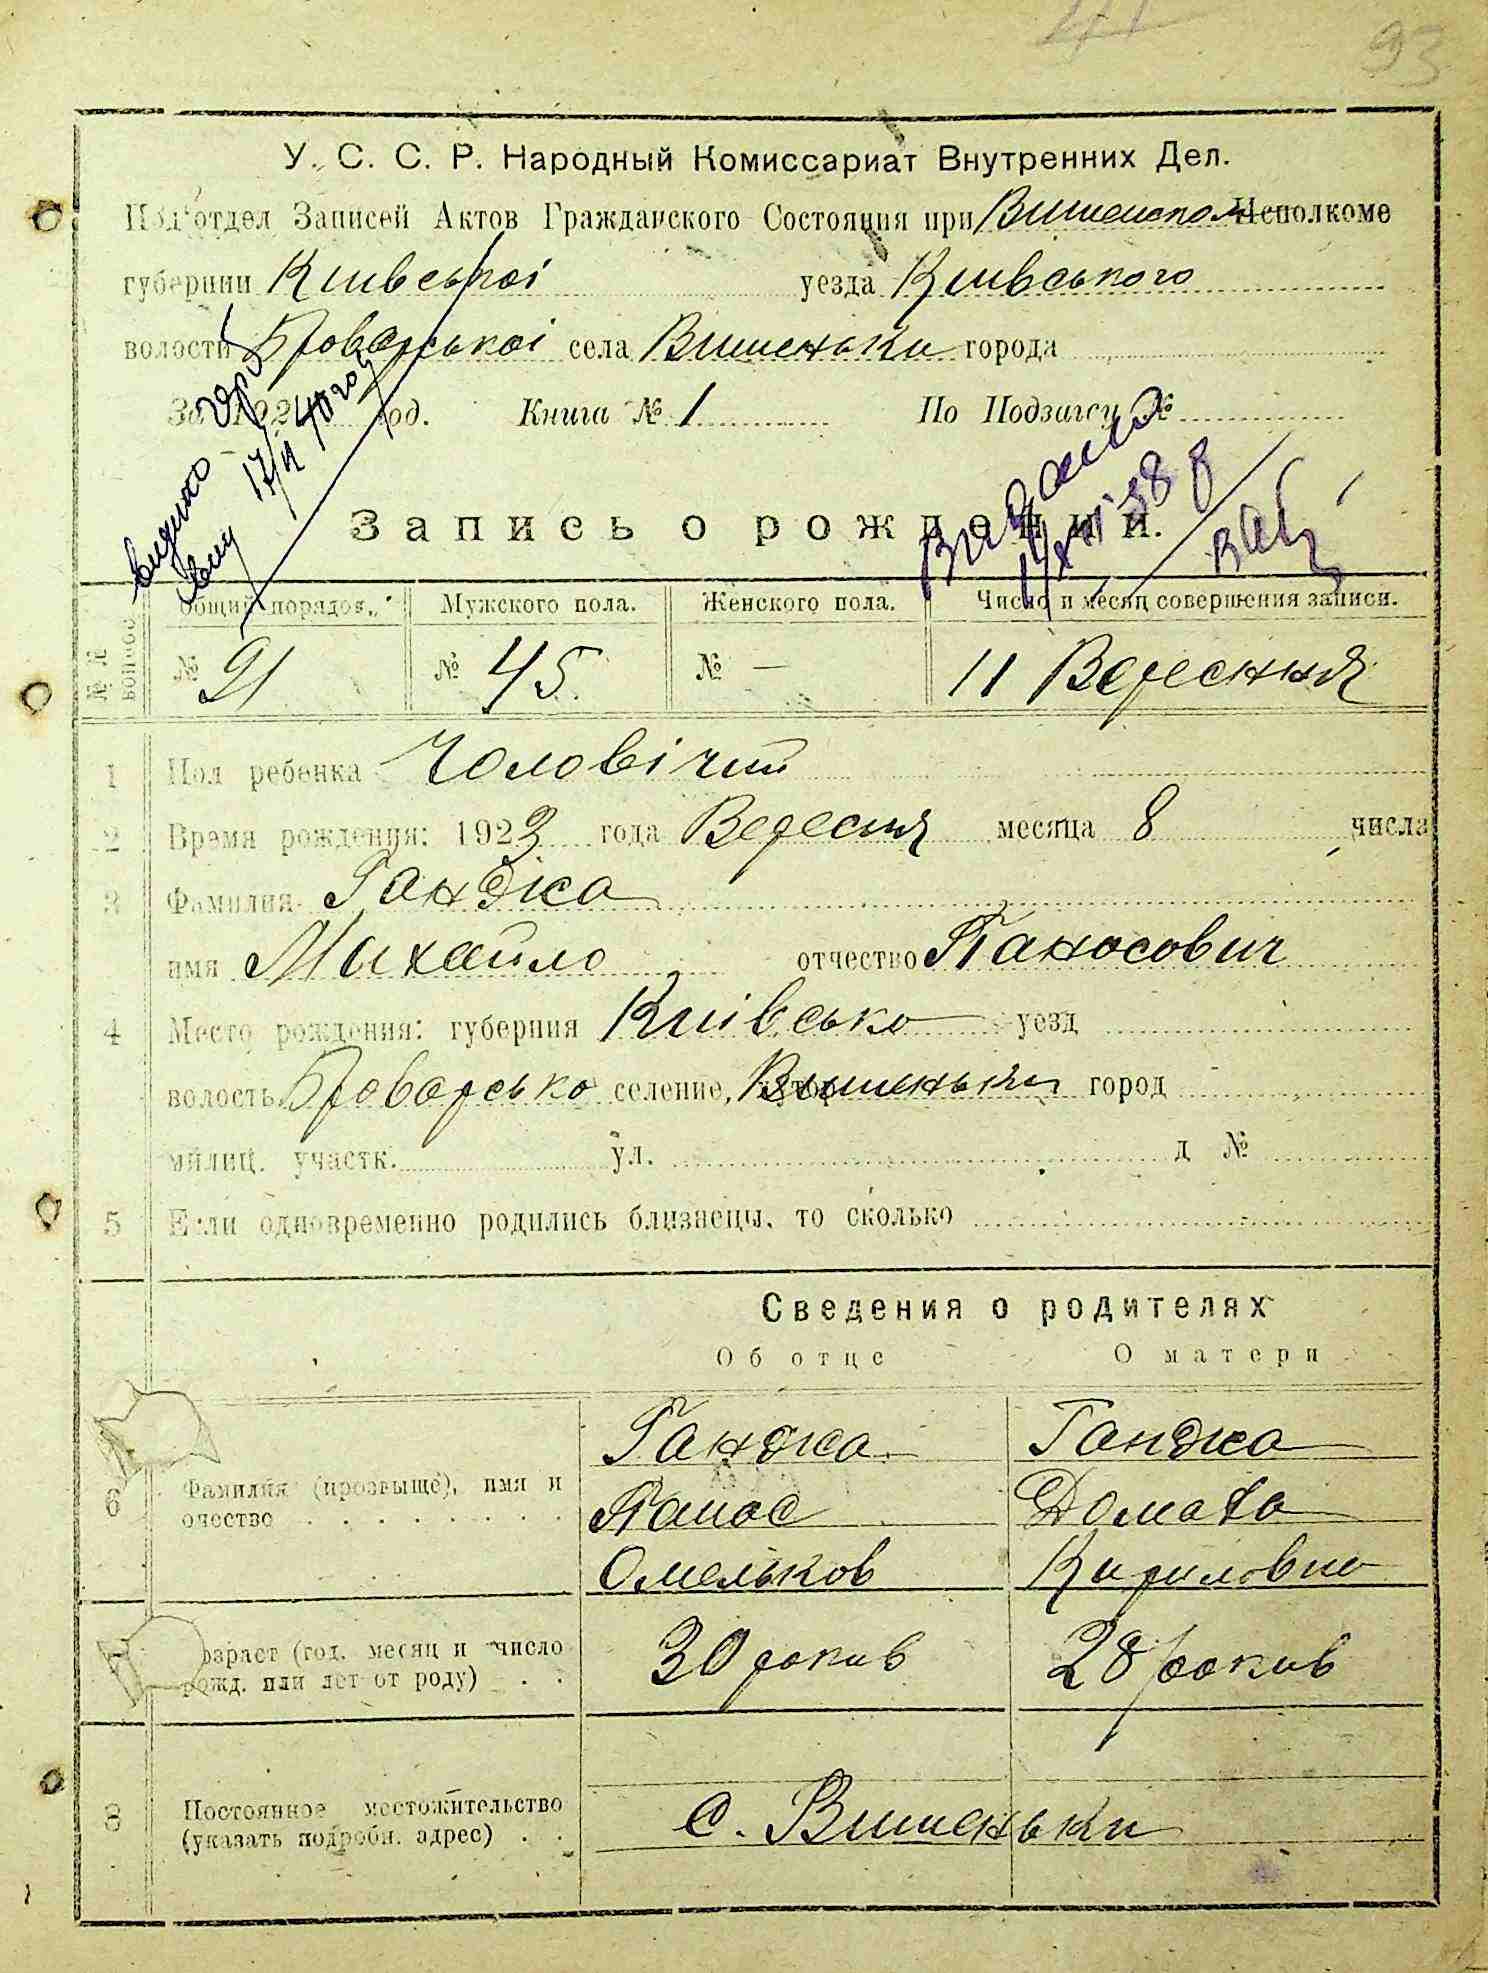 93
У. С. С. Р. Народный Комиссариат Внутренних Дел.
Под'отдел Записей Актов Гражданского Состояния при Исполкоме
губернии Київської уезда Київського
волости Броварської села Вишеньки города
За 192 год. Книга № 1 По Подзагсу №
Видано
Запись о рождении.
№№ вопросов Общий порядов. Мужского пола. Женского пола. Число и месяц совершения записи.
№ 91 № 45 № — 11 Вересння
1 Пол ребенка Чоловічий
2 Время рождения: 1923 года Вересня месяца 8 числа
3 Фамилия Ганджа
имя Михайло отчество Панасович
4 Место рождения: губерния Київсько уезд
волость Броварсько селение, хутор Вишеньки город
милиц. участк. ул. д №
5 Если одновременно родились близнецы, то сколько
Сведения о родителях
Об отце О матери
Ганджа Ганджа
6 Фамилия (прозвыще), имя и Панас Домаха
очество Омельков Кириловна
7 Возраст (год, месяц и число 30 років 28 років
рожд. или лет от роду)
8 Постоянное местожительство
(указать подробн. адрес) с. Вишеньки